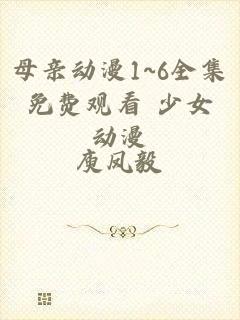 母亲动漫1~6全集
免费观看 少女
动漫
庾凤毅